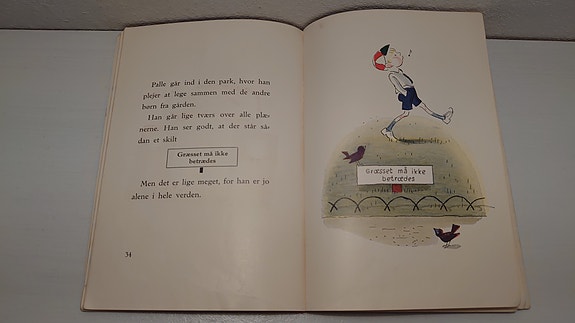 Palle går ind i den park, hvor han
plejer at lege sammen med de andre
børn fra gården.
Han går lige tværs over alle plæ-
nerne. Han ser godt, at der står så-
dan et skilt
Græsset må ikke
betrædes
Men det er lige meget, for han er jo
alene i hele verden.
34
Græsset må ikke
betrædes